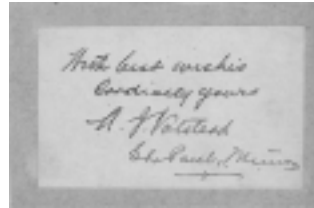 With best wishes
Cordially yours
A. J. Volstead
St. Paul, Minn